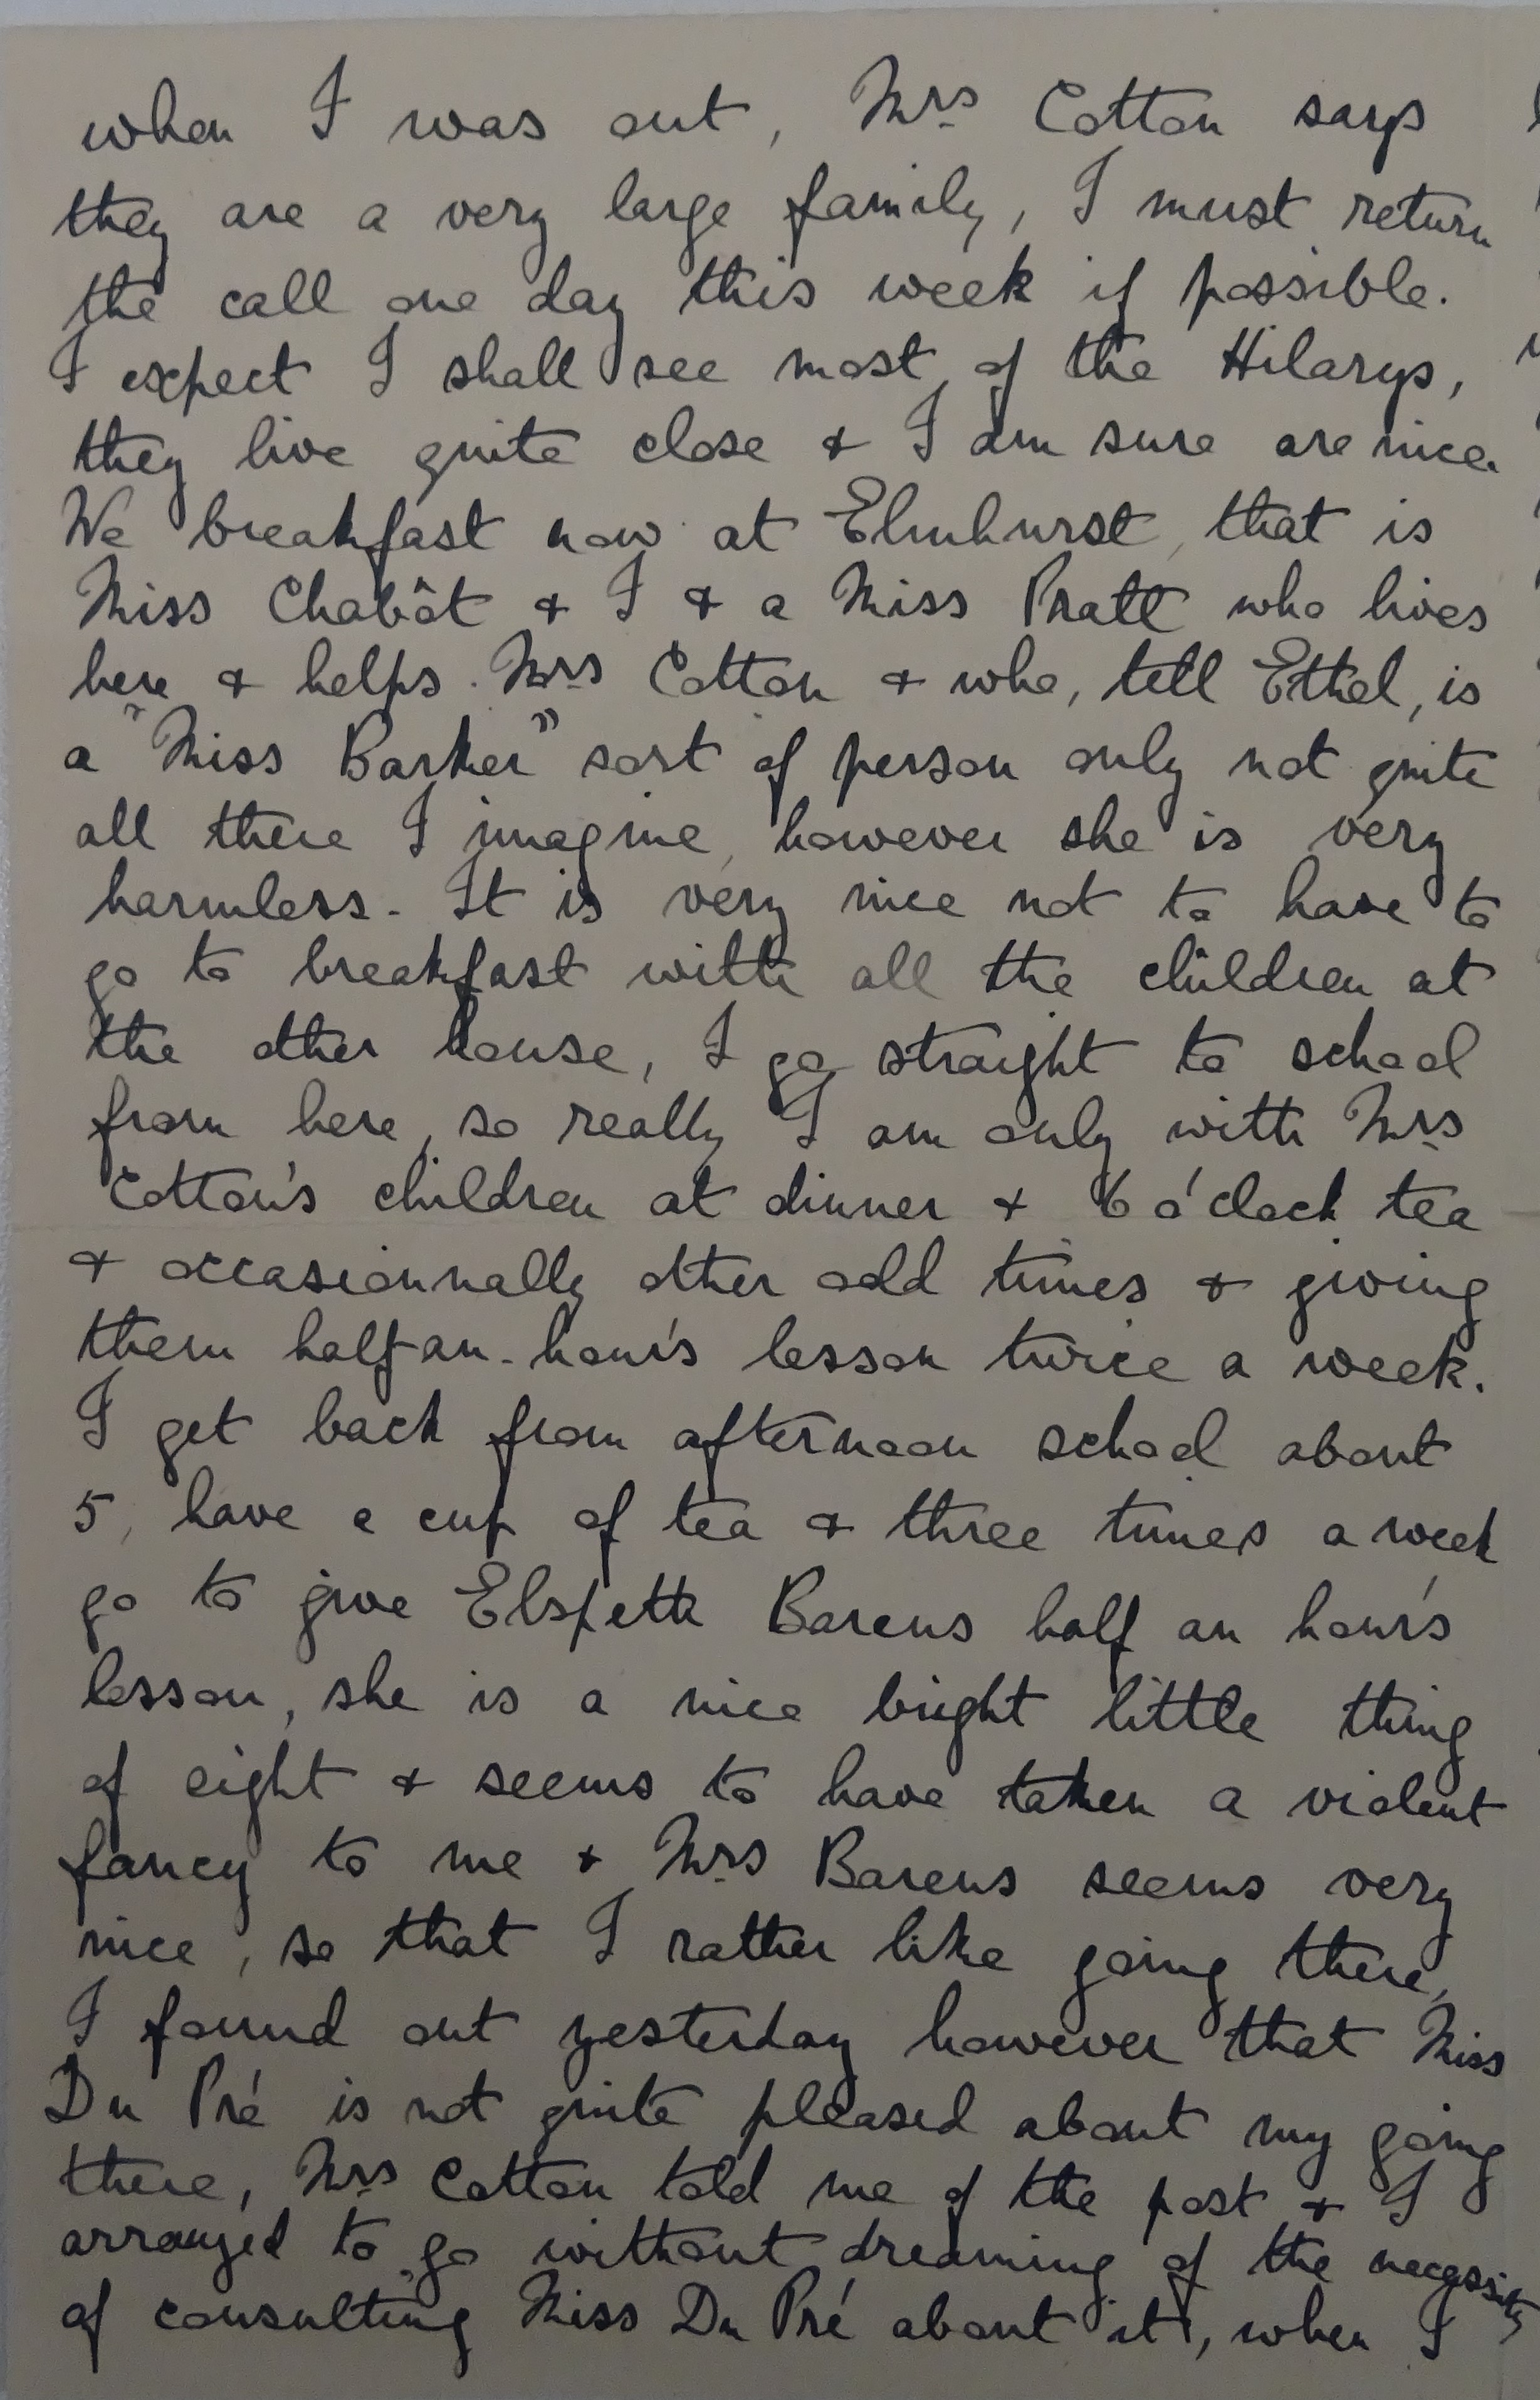 when I was out, Mrs Cotton says
they are a very large family, I must return
the call one day this week if possible.
I expect I shall see most of the Hilarys,
they live quite close & I am sure are nice.
We breakfast now at Elmhurst, that is
Miss Chabôt & I & a Miss Pratt who lives
here & helps Mrs Cotton & who, tell Ethel, is
a "Miss Barker" sort of person only not quite
all there I imagine, however she is very
harmless. It is very nice not to have to
go to breakfast with all the children at
the other house, I go straight to school
from here, so really I am only with Mrs
Cotton's children at dinner & 6 o'clock tea
& occasionnally other odd times & giving
them half an-hour's lesson twice a week.
I get back from afternoon school about
5, have a cup of tea & three times a week
go to give Elspeth Barens half an hour's
lesson, she is a nice bright little thing
of eight & seems to have taken a violent
fancy to me & Mrs Barens seems very
nice, so that I rather like going there,
I found out yesterday however that Miss
Du Pré is not quite pleased about my going
there, Mrs Cotton told me of the post & I
arranged to go without dreaming of the necessity
of consulting Miss Du Pré about it, when I